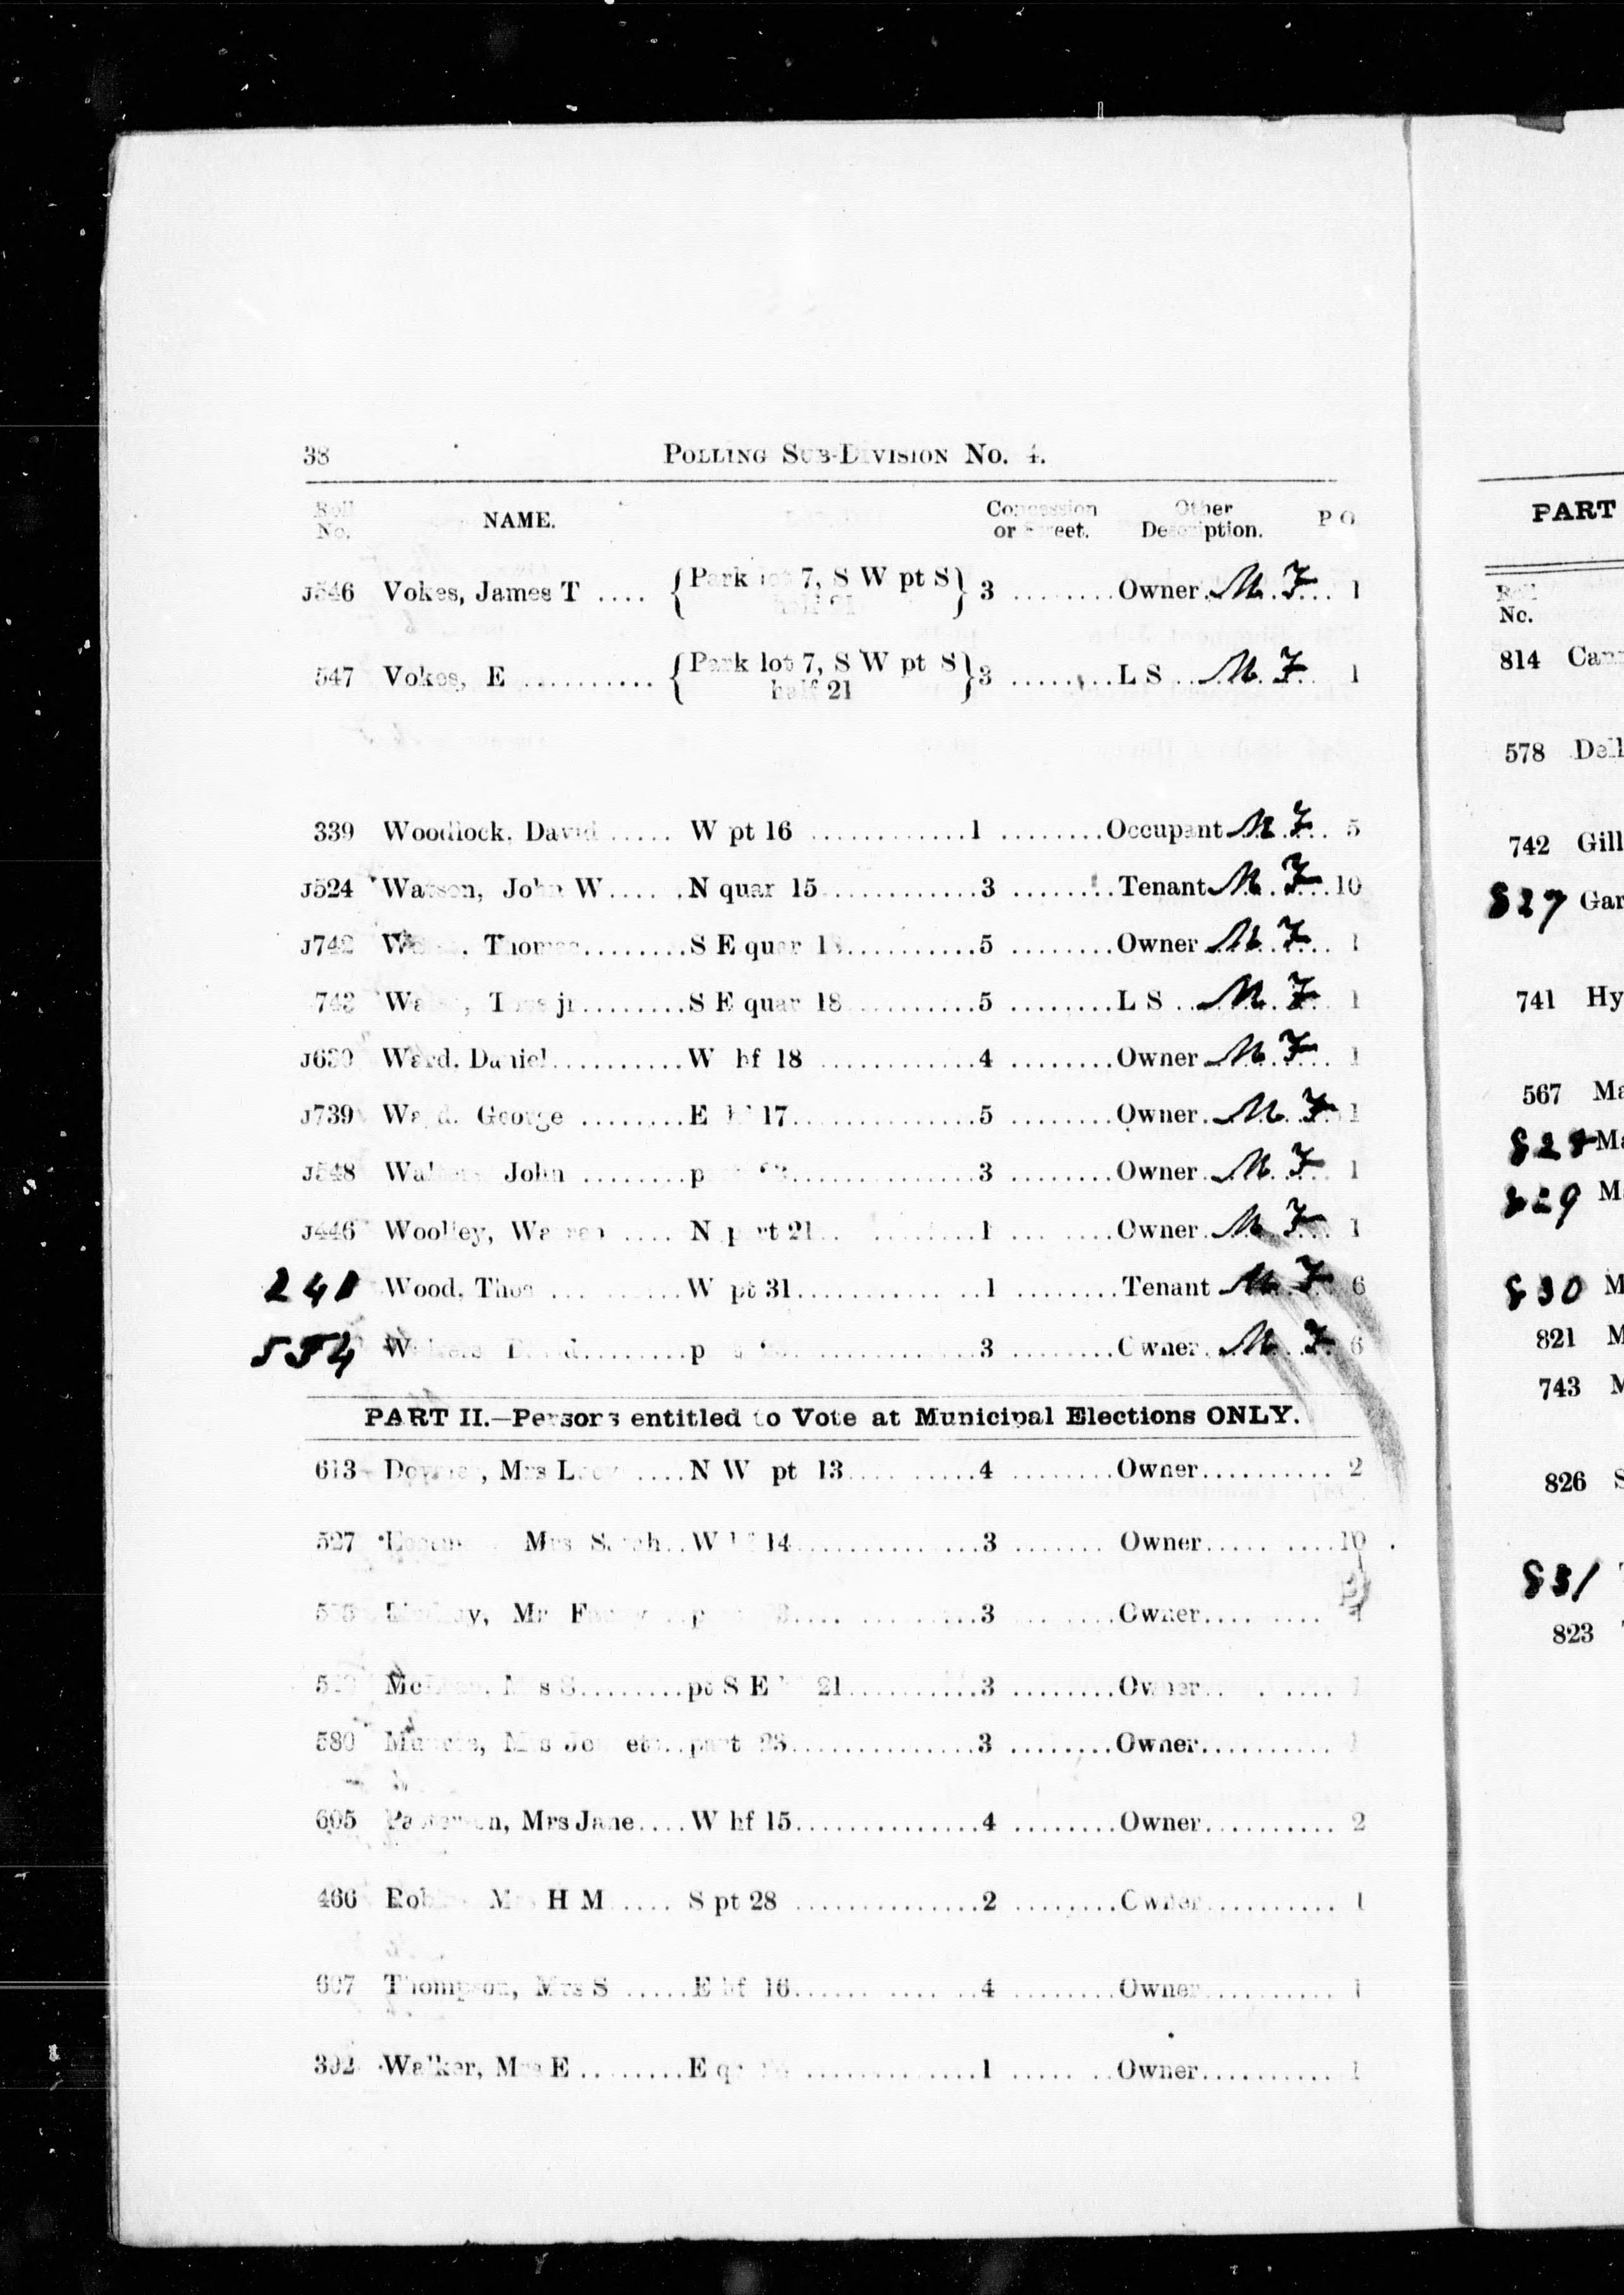 38 POLLING SUB-DIVISION No. 4.
Roll No. NAME. Concession or Street. Other Description. P O
J546 Vokes, James T .... {Park lot 7, S W pt S half 21} 3 ........ Owner. M. F... 1
547 Vokes, E .......... {Park lot 7, S W pt S half 21} 3 ........ L S ... M. F. 1
339 Woodlock, David ..... W pt 16 ............ 1 ........ Occupant M. F... 5
J524 Watson, John W ...... N quar 15 ............ 3 ........ Tenant M. F... 10
J742 Thomas ........ S E quar 18 ........... 5 ........ Owner M. F... 1
743 jr ........ S E quar 18 .......... 5 ........ L S .. M. F. 1
J630 Ward, Daniel .......... W hf 18 ............ 4 ........ Owner M. F... 1
J739 Ward, George ........ E hf 17 ............... 5 ........ Owner. M. F 1
J548 John ........ p ............... 3 ........ Owner. M. F 1
J446 Woolley, Warren .... N part 21 .......... 1 ........ Owner. M. F. 1
241 Wood, Thos .......... W pt 31 ............ 1 ........ Tenant M. F 6
554 David ........ p ............... 3 ........ Owner. M. F. 6
PART II.—Persons entitled to Vote at Municipal Elections ONLY.
613 Mrs Lucy .... N W pt 13 .......... 4 ........ Owner ........... 2
527 Mrs Sarah .. W hf 14 ............... 3 ....... Owner ........... 10
Mrs 3 ........ Owner ...........
Mrs S ........ pt S E 21 ........... 3 ........ Owner ........... 1
580 Mrs .. part 23 ............... 3 ........ Owner ........... 1
605 Patterson, Mrs Jane .... W hf 15 ............... 4 ........ Owner ........... 2
466 Mrs H M ..... S pt 28 .............. 2 ........ Owner ........... 1
607 Thompson, Mrs S ..... E hf 16 ............ 4 ........ Owner ........... 1
392 Walker, Mrs E ........ E ............. 1 ........ Owner ........... 1
PART
Roll No.
814
578
742 Gill
827 Gar
741 Hy
567 Ma
828 Ma
829 M
830 M
821 M
743 M
826 S
831
823